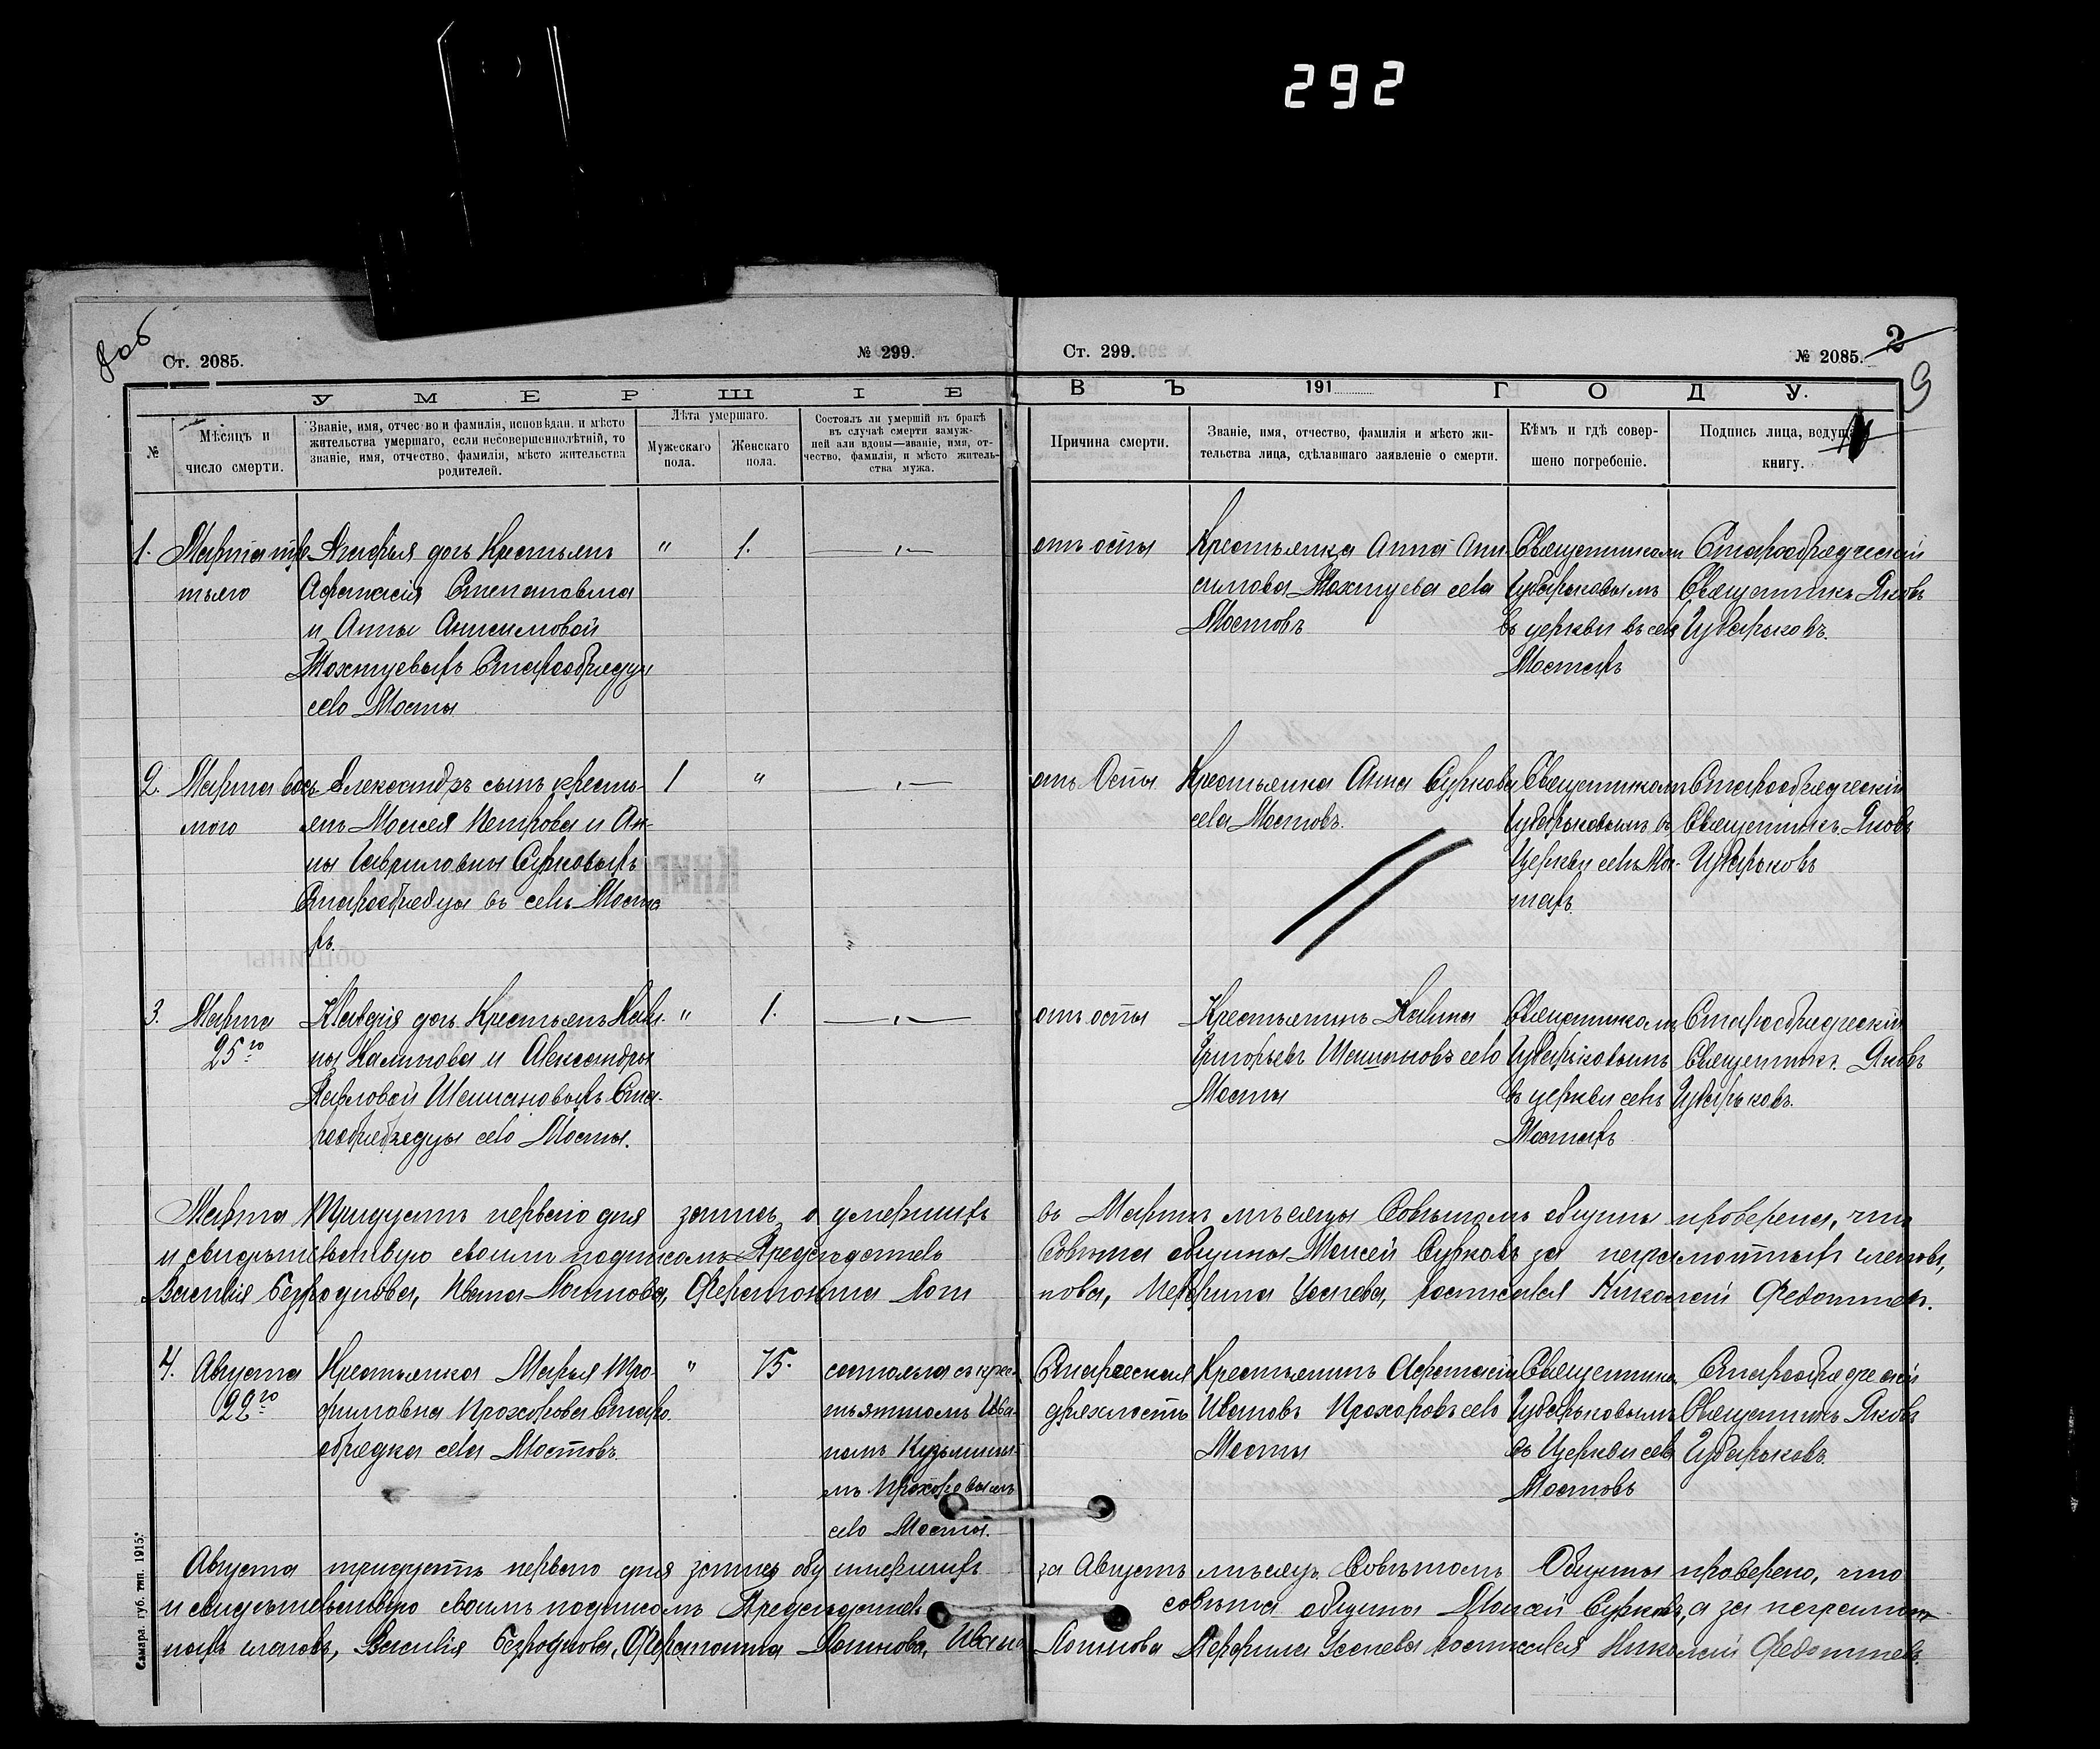 292
Ст. 2085.
№ 299.
Ст. 299.
№ 2085.
2
9
УМЕРШІЕ
ВЪ 191 ГОДУ.
№
Мѣсяцъ и
число смерти.
Званіе, имя, отчество и фамилія, исповѣдан. и мѣсто
жительства умершаго, если несовершеннолѣтній, то
званіе, имя, отчество, фамилія, мѣсто жительства
родителей.
Лѣта умершаго.
Мужескаго
пола.
Женскаго
пола.
Состоялъ ли умершій въ бракѣ
въ случаѣ смерти замуж-
ней али вдовы—званіе, имя, от-
чество, фамилія, и мѣсто житель-
ства мужа.
Причина смерти.
Званіе, имя, отчество, фамилія и мѣсто жи-
тельства лица, сдѣлавшаго заявленіе о смерти.
Кѣмъ и гдѣ совер-
шено погребеніе.
Подпись лица, ведущ
книгу.
1.
Марта тре
тьяго
Агафья дочь Крестьянъ
Афанасія Степановича
и Анны Анисимовой
Старообрядцы
село Мосты
"
1.
отъ оспы
Крестьянка Анна Ани
симова села
Мостовъ
Священникомъ
Цубарьковымъ
въ церкви въ селѣ
Мостахъ
Старообрядческій
Священникъ Яковъ
Цубарьковъ.
2.
Марта вось
мого
Александръ сынъ кресть-
янъ Моисея Петрова и Ан-
ны Гавриловны Сурковыхъ
Старообрядцы въ селѣ Моста
хъ.
1
"
отъ Оспы
Крестьянка Анна Суркова
села Мостовъ.
Священникомъ
Цубарьковымъ въ
Церкви селѣ Мос-
тахъ.
Старообрядческій
Священникъ Яковъ
Цубарьковъ
3.
Марта
25го
Клавдія дочь Крестьянъ
Калинова и Александры
Карповой Шишановыхъ Ста-
село Мосты.
"
1.
отъ оспы
Крестьянинъ Калина
Григорьевъ Шишановъ село
Мосты
Священникомъ
Цубарьковымъ
въ церкви селѣ
Мостахъ
Старообрядческій
Священникъ Яковъ
Цубарьковъ.
Марта тридцать перваго дня запись о умершихъ въ Мартѣ мѣсяцы Совѣтомъ общины проверена, что
и свидѣтельствую своимъ подписомъ Председатель Совѣта общины Моисей Сурковъ за неграмотныхъ членовъ,
Василія Безроднова, Ивана Логинова, Ферапонта Логи нова, Перфила Усачева, росписался Николай Федотичевъ.
4.
Августа
22го
Крестьянка Марья Тро-
фимовна Прохорова Старо
обрядка села Мостовъ.
"
75.
состояла съ крес-
тьяниномъ Ива-
номъ Кузьмины-
мъ Прохоровымъ
село Мосты.
Старческая
дряхлость
Крестьянинъ Афанасій
Ивановъ Прохоровъ село
Мосты
Священника
Цубарьковымъ
въ Церкви села
Мостовъ
Старообрядческій
Священникъ Яковъ
Цубарьковъ.
Августа тридцать перваго дня запись объ умершихъ за Августъ мѣсяцъ Совѣтомъ Общины проверено, что
и свидѣтельствую своимъ подписомъ Председатель совѣта общины Моисей Сурковъ, а за неграмот
ныхъ членовъ, Василія Безроднова, Ферапонта Логинова, Ивана Логинова Перфила Усачева росписался Николай Федотичевъ.
Самара. губ. тип. 1915.